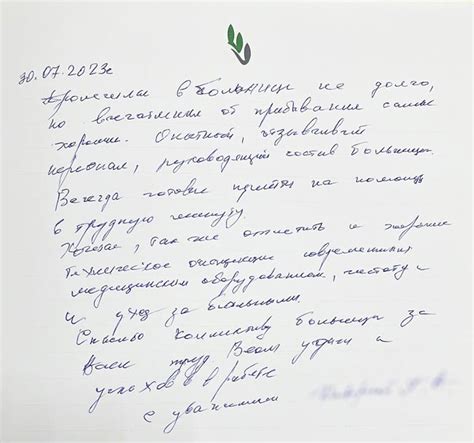 30.07.2023г
Пролечили в больнице не долго,
но впечатления от прибывания самые
хорошие. Опытный, отзывчивый
персонал, руководящий состав больницы.
Всегда готовые прийти на помощь
в трудную минуту.
Хочется, так же отметить и хорошее
техническое оснащение современным
медицинским оборудованием, чистоту и
и уход за больными.
Спасибо коллективу больницы за
Ваш труд Всем удачи и
успехов в работе
с уважением